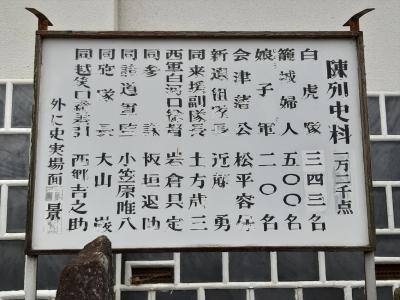 陳列史料 一万二千点
白虎隊 三四三名
籠城婦人 五〇〇名
娘子軍 二〇名
会津藩公 松平容保
新選組隊長 近藤勇
同来援副隊長 土方歳三
西軍白河口総督 岩倉具定
同参謀 板垣退助
同諸道軍監 小笠原唯八
同砲隊長 大山巌
同越後口総差引 西郷吉之助
外に史実場面 景